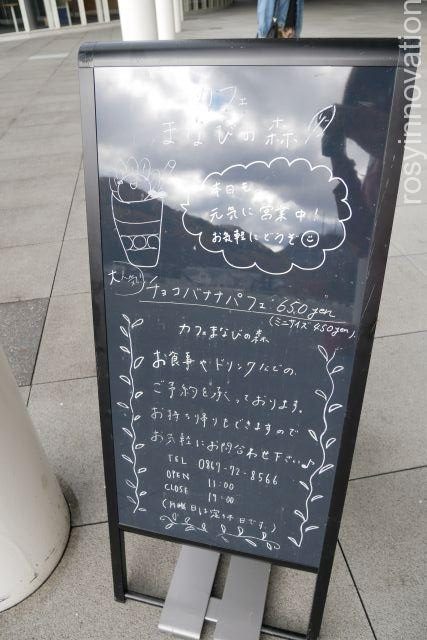 カフェ
まなびの森
本日も
元気に営業中!
お気軽にどうぞ
大人気!
チョコバナナパフェ・650yen
(ミニサイズ 450yen)
カフェまなびの森
お食事やドリンクなどの、
ご予約を承っております。
お持ち帰りもできますので
お気軽にお問合わせ下さい♪
TEL 0867-72-8566
OPEN 11:00
CLOSE 17:00
(月曜日は定休日です。)
rosyinnovation